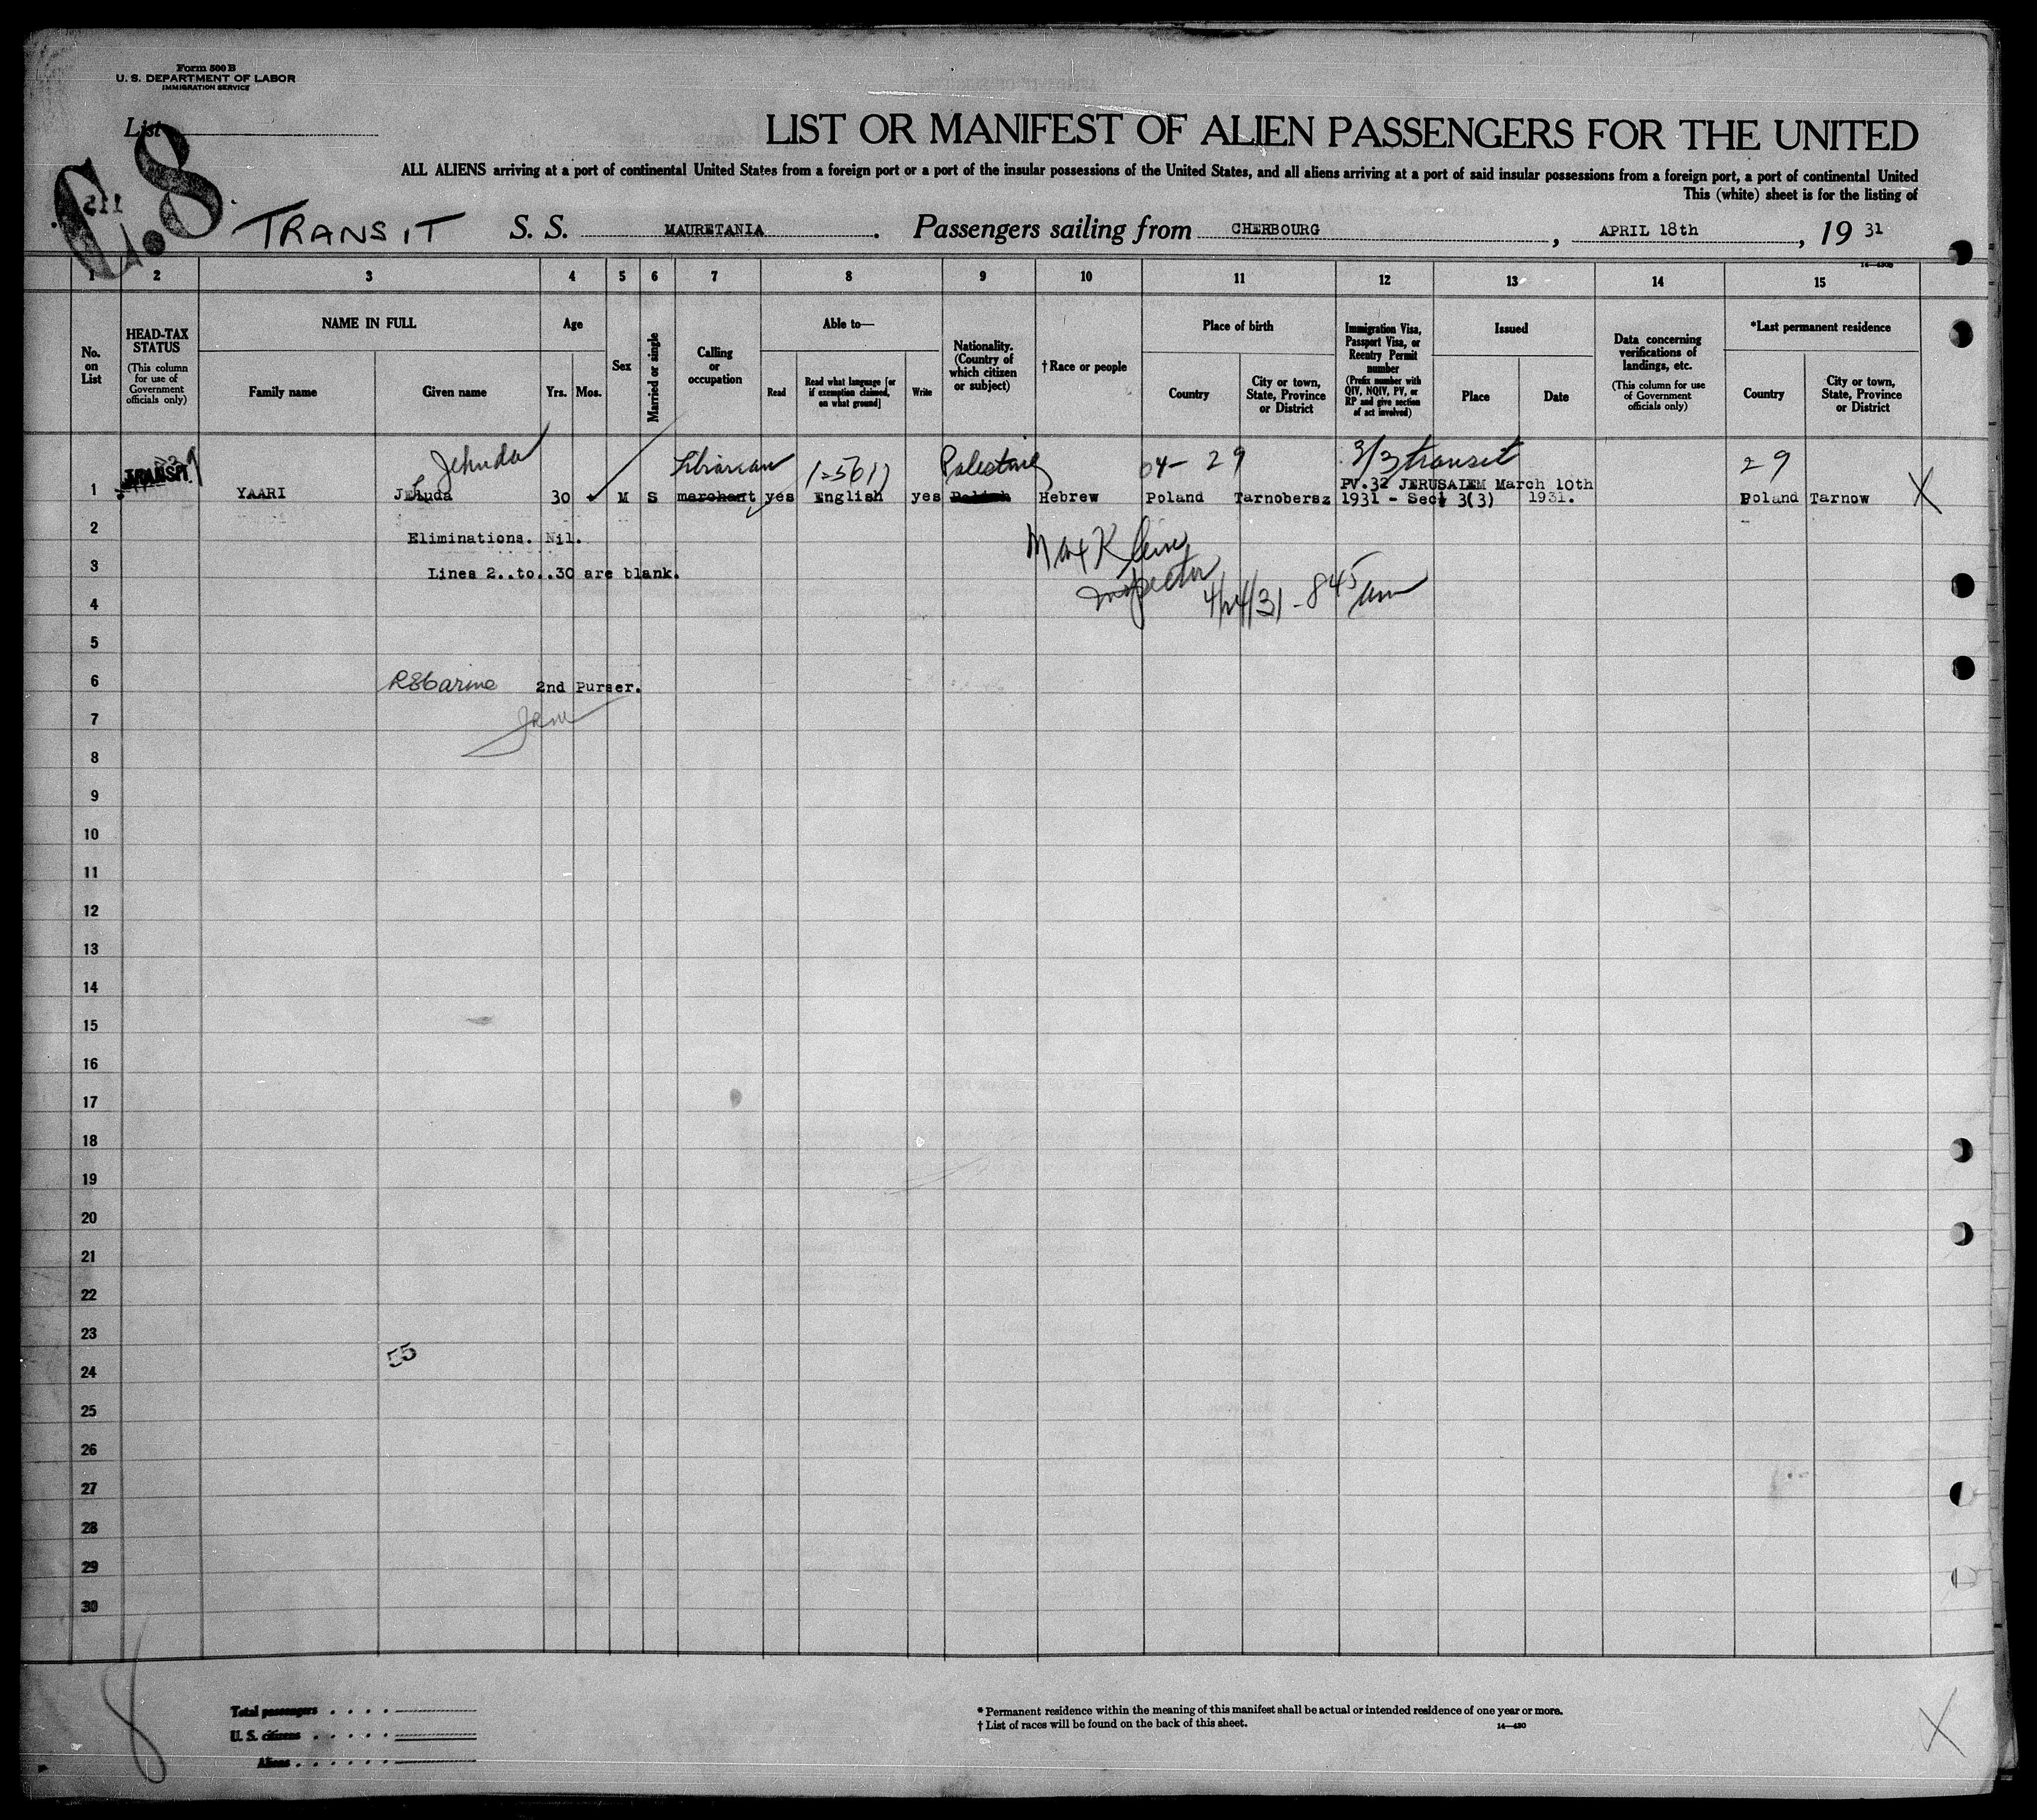 Form 500 B
U. S. DEPARTMENT OF LABOR
IMMIGRATION SERVICE
List
C.8
211
LIST OR MANIFEST OF ALIEN PASSENGERS FOR THE UNITED
ALL ALIENS arriving at a port of continental United States from a foreign port or a port of the insular possessions of the United States, and all aliens arriving at a port of said insular possessions from a foreign port, a port of continental United
This (white) sheet is for the listing of
TRANSIT S. S. MAURETANIA. Passengers sailing from CHERBOURG, APRIL 18th, 19 31
14—430B
1 2 3 4 5 6 7 8 9 10 11 12 13 14 15
No. on List
HEAD-TAX STATUS (This column for use of Government officials only)
NAME IN FULL
Family name Given name
Age
Yrs. Mos.
Sex
Married or single
Calling or occupation
Able to—
Read Read what language [or if exemption claimed, on what ground] Write
Nationality. (Country of which citizen or subject)
†Race or people
Place of birth
Country City or town, State, Province or District
Immigration Visa, Passport Visa, or Reentry Permit number (Prefix number with QIV, NQIV, PV, or RP and give section of act involved)
Issued
Place Date
Data concerning verifications of landings, etc. (This column for use of Government officials only)
*Last permanent residence
Country City or town, State, Province or District
TRANSIT Jehuda Librarian Palestine 04- 29 3/3 transit 29
PV.32 JERUSALEM March 10th
1 YAARI Jehuda 30 M S merchant yes English yes Polish Hebrew Poland Tarnobersz 1931 - Sec 3(3) 1931. Poland Tarnow X
2 Eliminations. Nil.
Max Klein
3 Lines 2..to..30 are blank.
Inspector
4/24/31 - 8 45 am
4
5
6 2nd Purser.
7
8
9
10
11
12
13
14
15
16
17
18
19
20
21
22
23
55
24
25
26
27
28
29
30
8
Total passengers
U. S. citizens
Aliens
* Permanent residence within the meaning of this manifest shall be actual or intended residence of one year or more.
† List of races will be found on the back of this sheet. 14—430
X